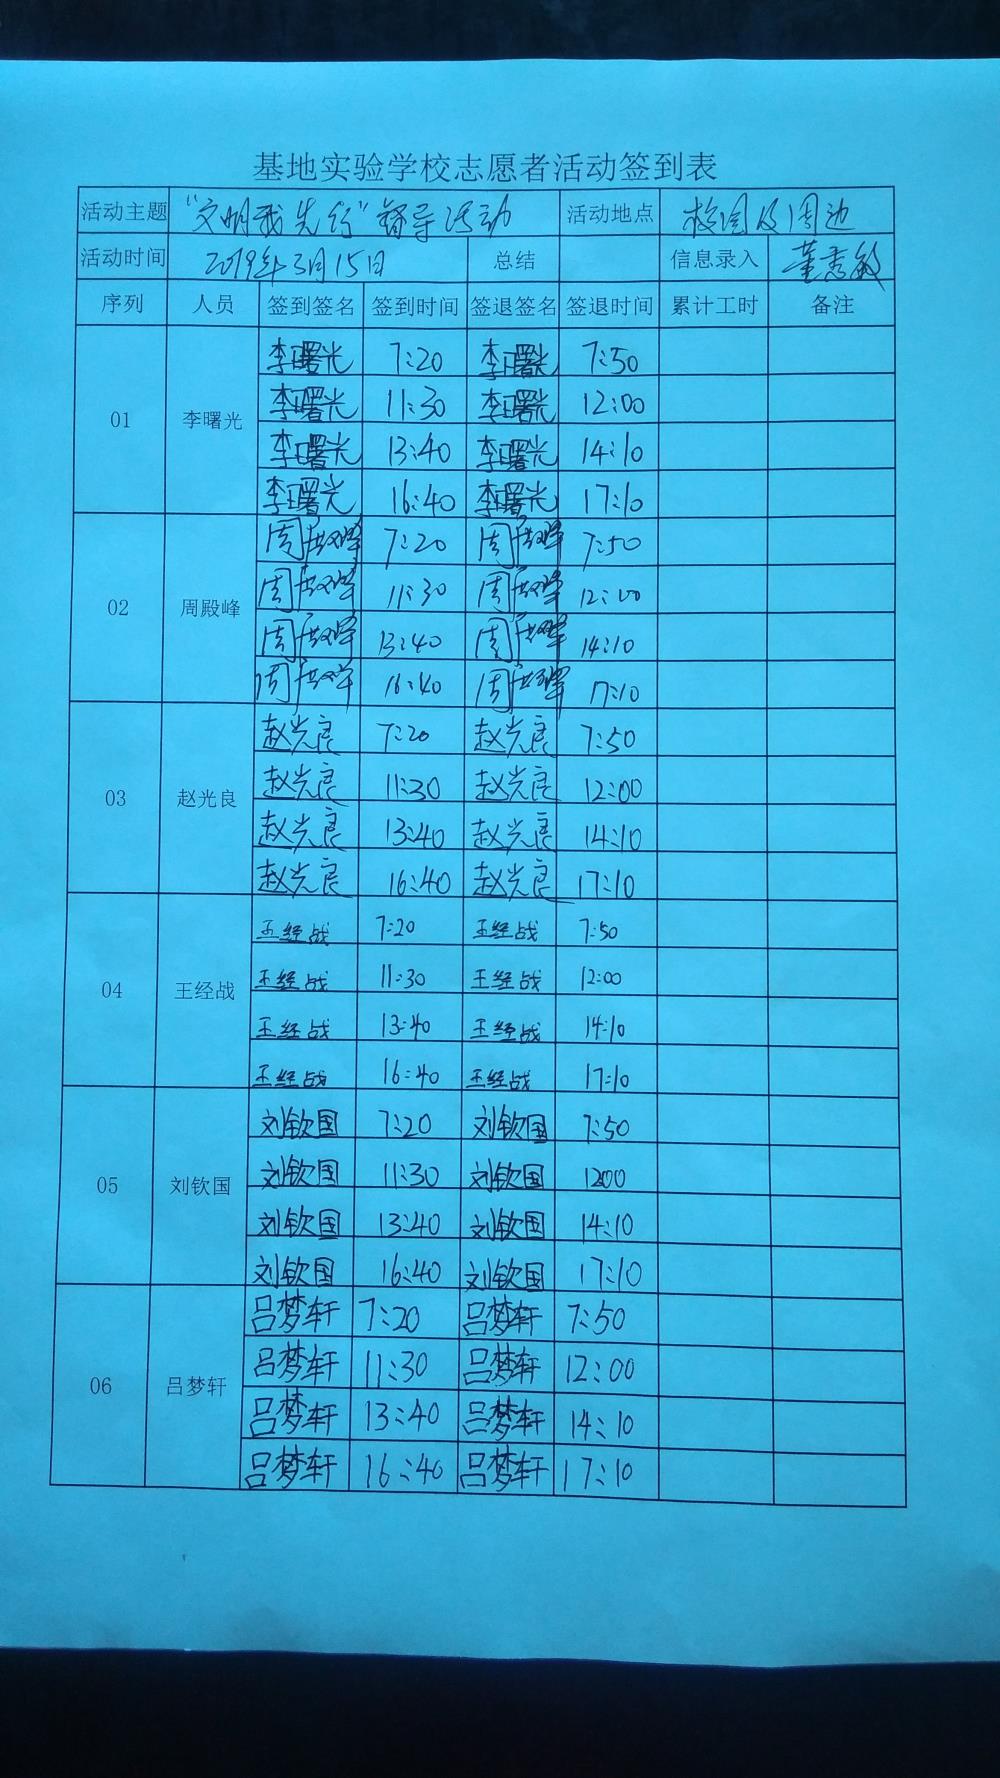 基地实验学校志愿者活动签到表
活动主题 "文明我先行"督导活动 活动地点 校园及周边
活动时间 2019年3月15日 总结 信息录入 董秀敏
序列 人员 签到签名 签到时间 签退签名 签退时间 累计工时 备注
李曙光 7:20 李曙光 7:50
李曙光 11:30 李曙光 12:00
01 李曙光
李曙光 13:40 李曙光 14:10
李曙光 16:40 李曙光 17:10
周殿峰 7:20 周殿峰 7:50
周殿峰 11:30 周殿峰 12:00
02 周殿峰
周殿峰 13:40 周殿峰 14:10
周殿峰 16:40 周殿峰 17:10
赵光良 7:20 赵光良 7:50
赵光良 11:30 赵光良 12:00
03 赵光良
赵光良 13:40 赵光良 14:10
赵光良 16:40 赵光良 17:10
王经战 7:20 王经战 7:50
王经战 11:30 王经战 12:00
04 王经战
王经战 13:40 王经战 14:10
王经战 16:40 王经战 17:10
刘钦国 7:20 刘钦国 7:50
刘钦国 11:30 刘钦国 1200
05 刘钦国
刘钦国 13:40 刘钦国 14:10
刘钦国 16:40 刘钦国 17:10
吕梦轩 7:20 吕梦轩 7:50
吕梦轩 11:30 吕梦轩 12:00
06 吕梦轩
吕梦轩 13:40 吕梦轩 14:10
吕梦轩 16:40 吕梦轩 17:10